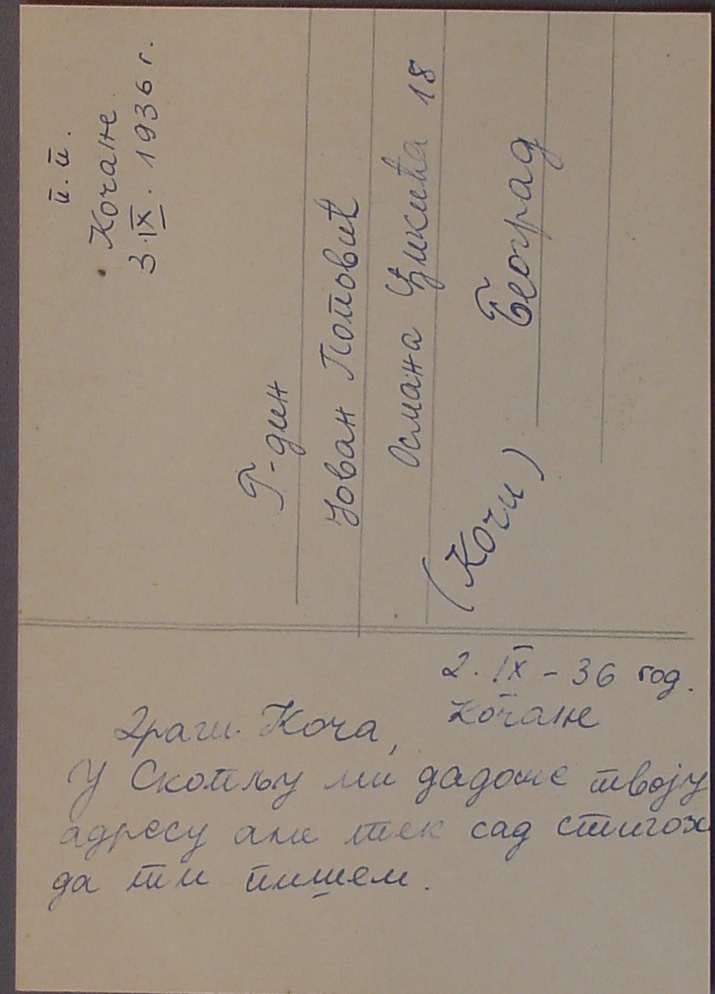 п.п.
Кочане.
3.IX.1936 г.
Г-дин
Јован Поповић
Османа Џикића 18
(Кочи)
Београд
2. IX – 36 год.
Кочане
Драги Коча,
У Скопљу ми дадоше твоју
адресу али тек сад стигох
да ти пишем.